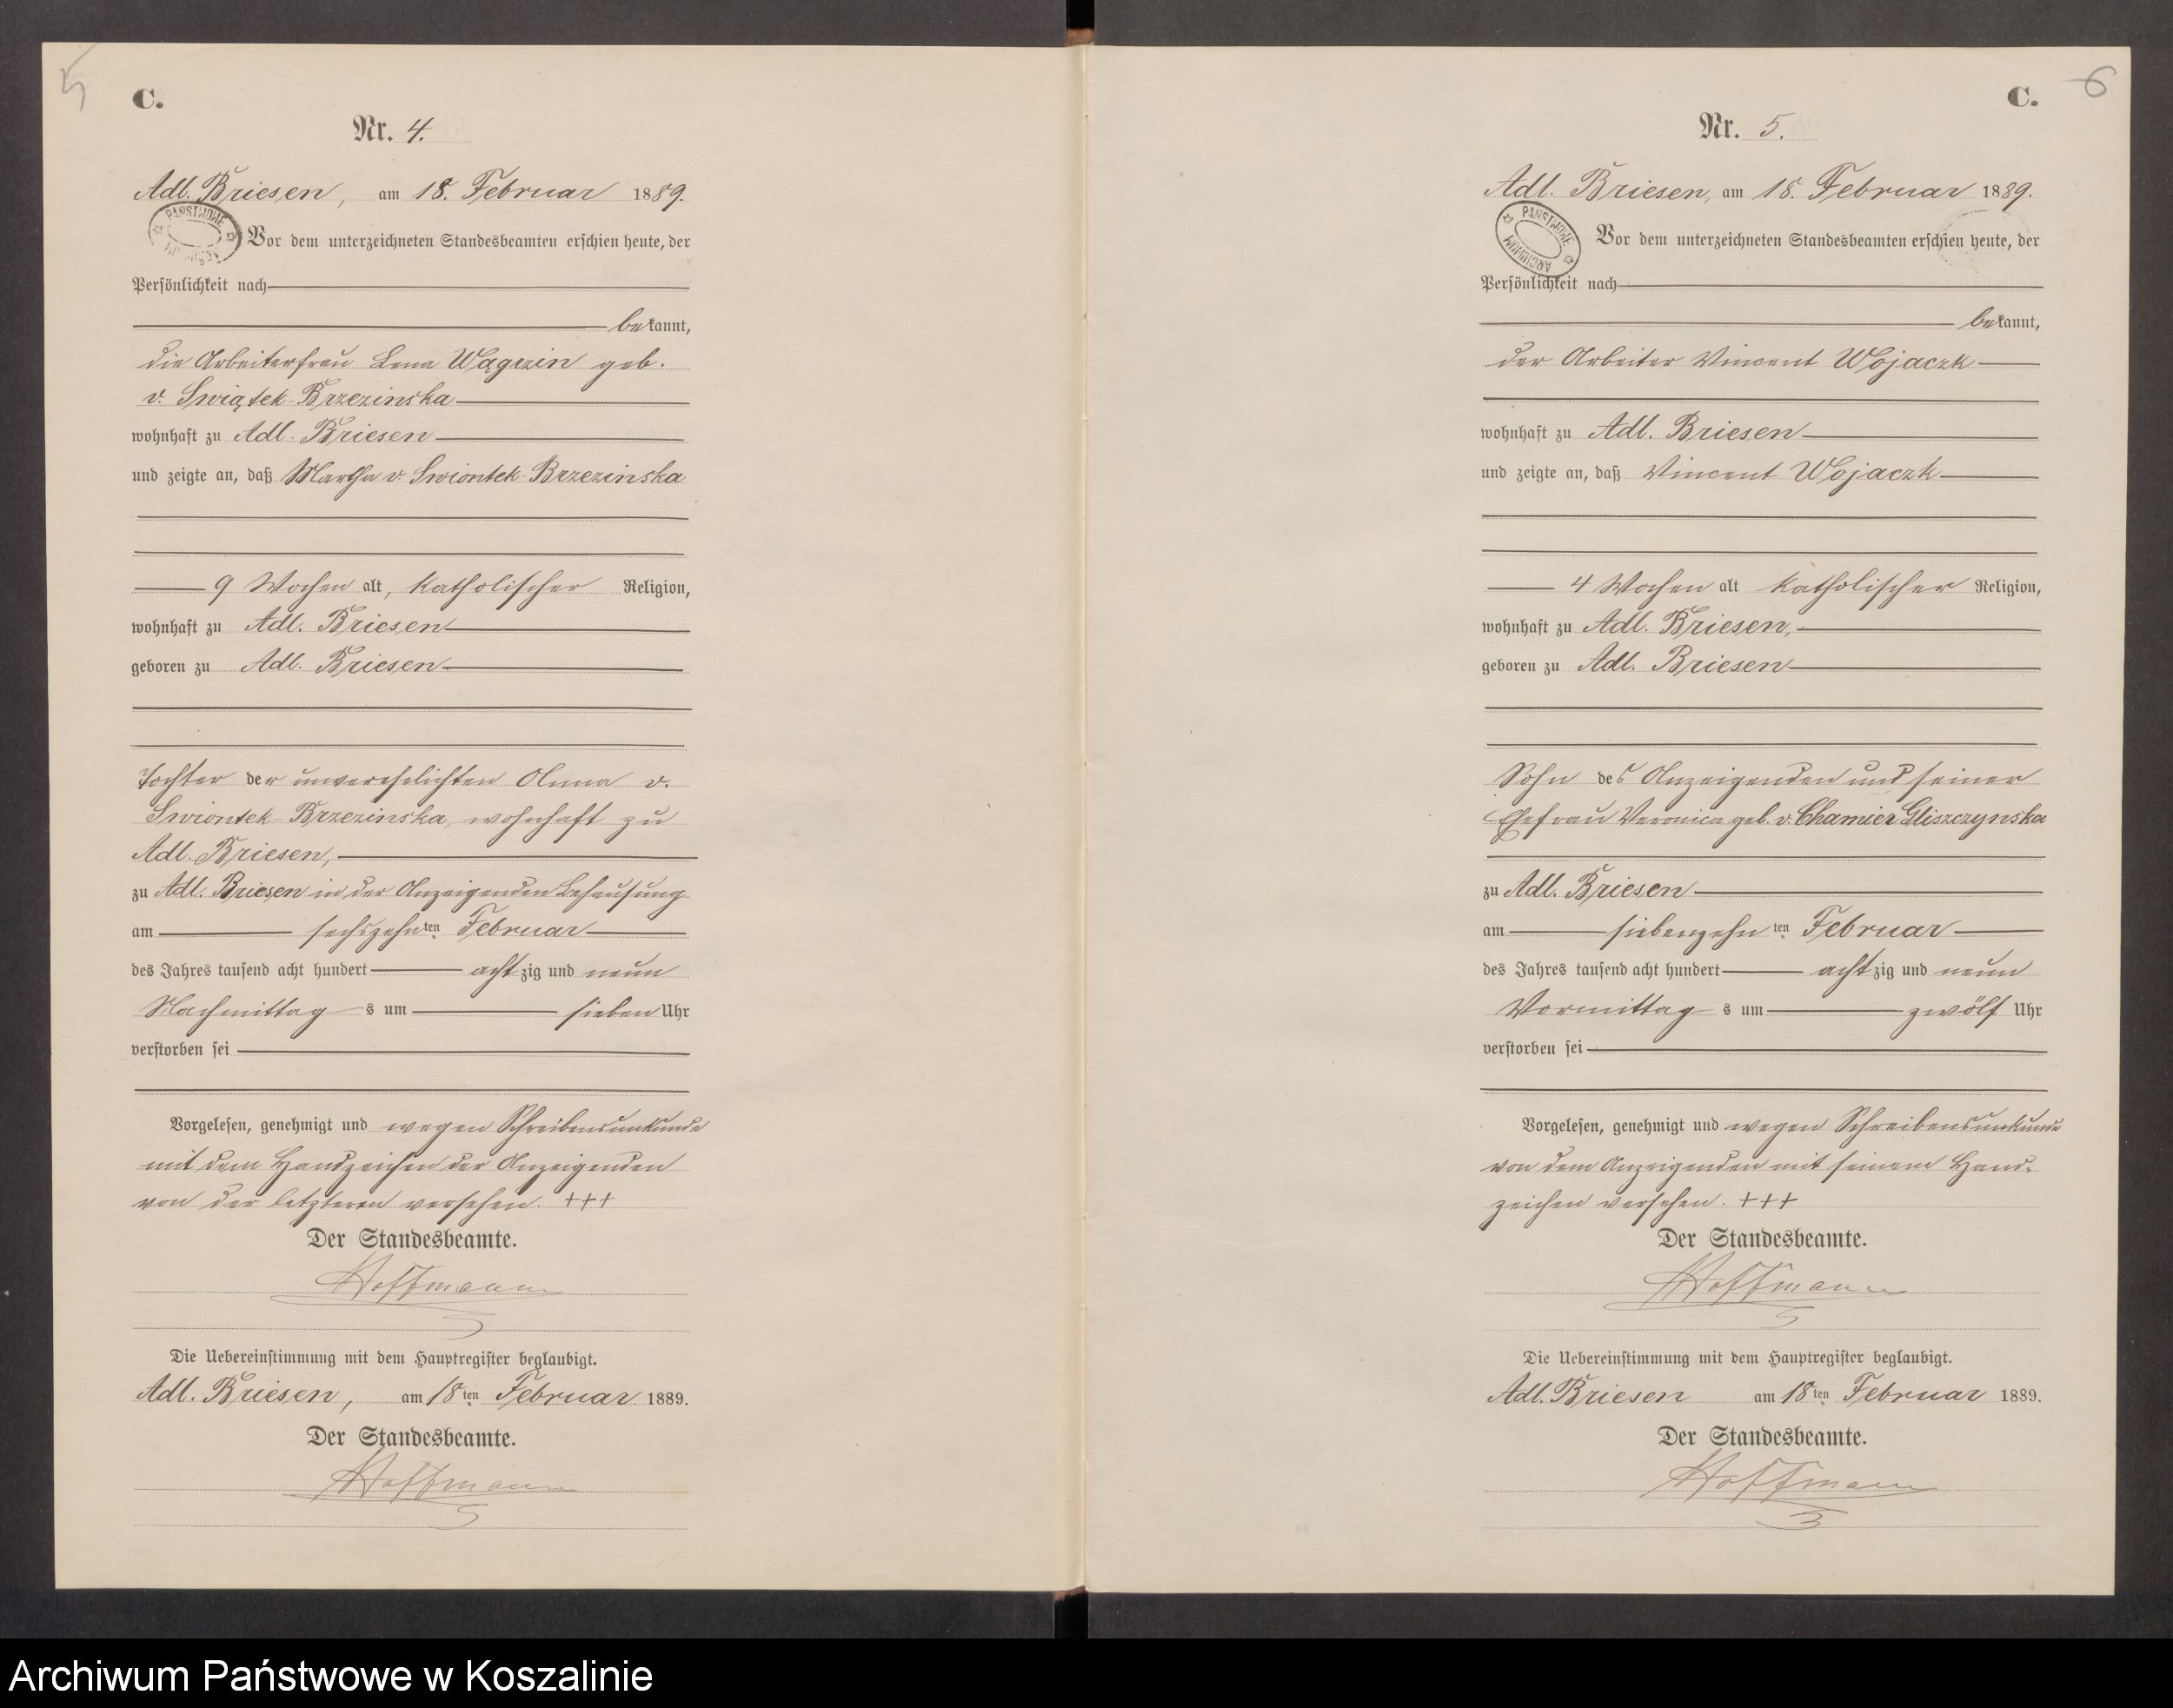 5
C.
Nr. 4.
Adl. Briesen, am 18. Februar 1889.
PAŃSTWOWE ARCHIWUM
Vor dem unterzeichneten Standesbeamten erschien heute, der
Persönlichkeit nach
bekannt,
die Arbeiterfrau Lena Wagrzin geb.
v. Swiątek-Brzezinska
wohnhaft zu Adl. Briesen
und zeigte an, daß Martha v. Swiontek-Brzezinska
9 Wochen alt, katholischer Religion,
wohnhaft zu Adl. Briesen
geboren zu Adl. Briesen
Tochter der unverehelichten Anna v.
Swiontek-Brzezinska, wohnhaft zu
Adl. Briesen,
zu Adl. Briesen in der Anzeigenden Behausung
am sechszehnten Februar
des Jahres tausend acht hundert achtzig und neun
Nachmittags um sieben Uhr
verstorben sei
Vorgelesen, genehmigt und wegen Schreibensunkunde
mit dem Handzeichen der Anzeigenden
von der letzteren versehen. +++
Der Standesbeamte.
Hoffmann
Die Uebereinstimmung mit dem Hauptregister beglaubigt.
Adl. Briesen, am 18ten Februar 1889.
Der Standesbeamte.
Hoffmann
6
C.
Nr. 5.
Adl. Briesen, am 18. Februar 1889.
PAŃSTWOWE ARCHIWUM
Vor dem unterzeichneten Standesbeamten erschien heute, der
Persönlichkeit nach
bekannt,
der Arbeiter Vincent Wojaczk
wohnhaft zu Adl. Briesen
und zeigte an, daß Vincent Wojaczk
4 Wochen alt katholischer Religion,
wohnhaft zu Adl. Briesen,
geboren zu Adl. Briesen
Sohn des Anzeigenden und seiner
Ehefrau Veronica geb. v. Chamier Gliszczynska
zu Adl. Briesen
am siebenzehnten Februar
des Jahres tausend acht hundert achtzig und neun
Vormittags um zwölf Uhr
verstorben sei
Vorgelesen, genehmigt und wegen Schreibensunkunde
von dem Anzeigenden mit seinem Hand-
zeichen versehen. +++
Der Standesbeamte.
Hoffmann
Die Uebereinstimmung mit dem Hauptregister beglaubigt.
Adl. Briesen am 18ten Februar 1889.
Der Standesbeamte.
Hoffmann
Archiwum Państwowe w Koszalinie